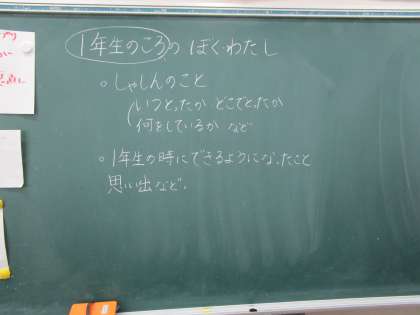 1年生のころの ぼく・わたし
○しゃしんのこと
(いつとったか どこでとったか
何をしているか など
○1年生の時にできるようになったこと
思い出など.